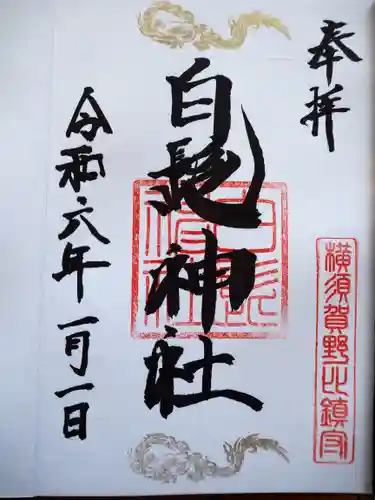 奉拝
横須賀野比鎮守
白髭神社
白髭神社
令和六年一月一日